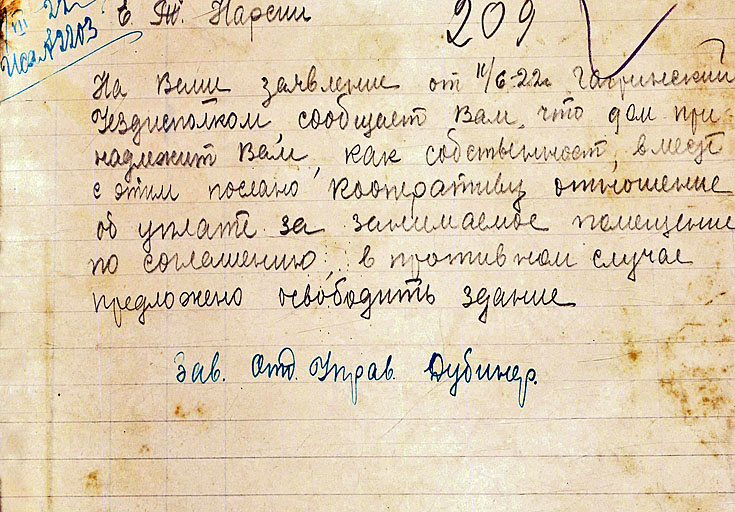 III 22
Исх № 2203
Е. Т. Нарсии
209
На Ваши заявление от 11/6-22г Гагринский
Уездисполком, сообщает Вам, что дом при
надлежит Вам, как собственност, вместе
с этим послано кооперативу отношение
об уплате за занимаемое помещение
по соглашению, в противном случае
предложено освободить здание
Зав. Отд. Управ. Дубинер.